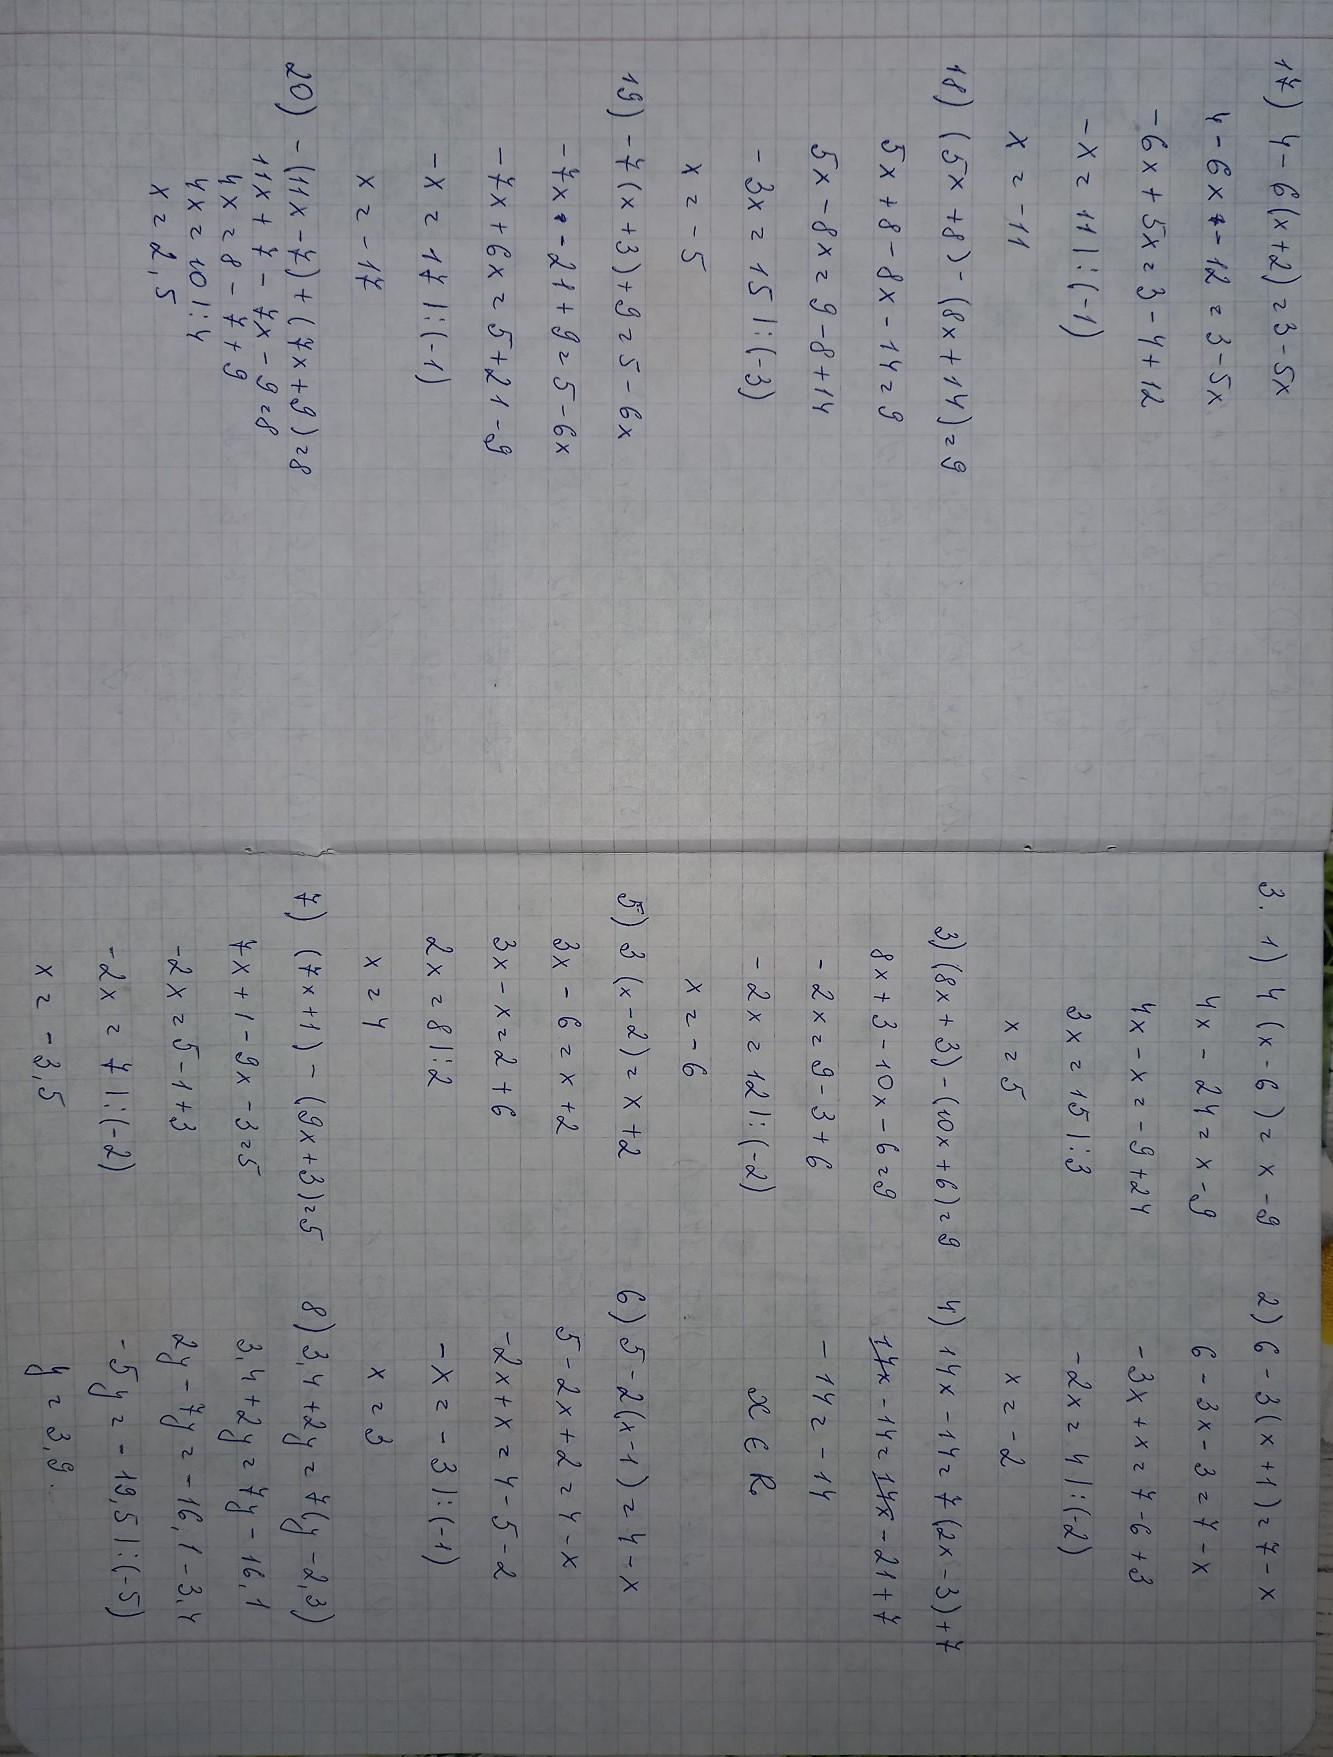 17) 4 - 6(x+2) = 3 - 5x
4 - 6x - 12 = 3 - 5x
-6x + 5x = 3 - 4 + 12
-x = 11 |:(-1)
x = -11
18) (5x+8) - (8x+14) = 9
5x + 8 - 8x - 14 = 9
5x - 8x = 9 - 8 + 14
-3x = 15 |:(-3)
x = -5
19) -7(x+3) + 9 = 5 - 6x
-7x - 21 + 9 = 5 - 6x
-7x + 6x = 5 + 21 - 9
-x = 17 |:(-1)
x = -17
20) -(11x - 7) + (7x + 9) = 8
11x + 7 - 7x - 9 = 8
4x = 8 - 7 + 9
4x = 10 |:4
x = 2,5
3. 1) 4(x - 6) = x - 9
4x - 24 = x - 9
4x - x = -9 + 24
3x = 15 |:3
x = 5
2) 6 - 3(x+1) = 7 - x
6 - 3x - 3 = 7 - x
-3x + x = 7 - 6 + 3
-2x = 4 |:(-2)
x = -2
3) (8x+3) - (10x+6) = 9
8x + 3 - 10x - 6 = 9
-2x = 9 - 3 + 6
-2x = 12 |:(-2)
x = -6
4) 14x - 14 = 7(2x - 3) + 7
14x - 14 = 14x - 21 + 7
-14 = -14
x ∈ R
5) 3(x - 2) = x + 2
3x - 6 = x + 2
3x - x = 2 + 6
2x = 8 |:2
x = 4
6) 5 - 2(x - 1) = 4 - x
5 - 2x + 2 = 4 - x
-2x + x = 4 - 5 - 2
-x = -3 |:(-1)
x = 3
7) (7x+1) - (9x+3) = 5
7x + 1 - 9x - 3 = 5
-2x = 5 - 1 + 3
-2x = 7 |:(-2)
x = -3,5
8) 3,4 + 2y = 7(y - 2,3)
3,4 + 2y = 7y - 16,1
2y - 7y = -16,1 - 3,4
-5y = -19,5 |:(-5)
y = 3,9.